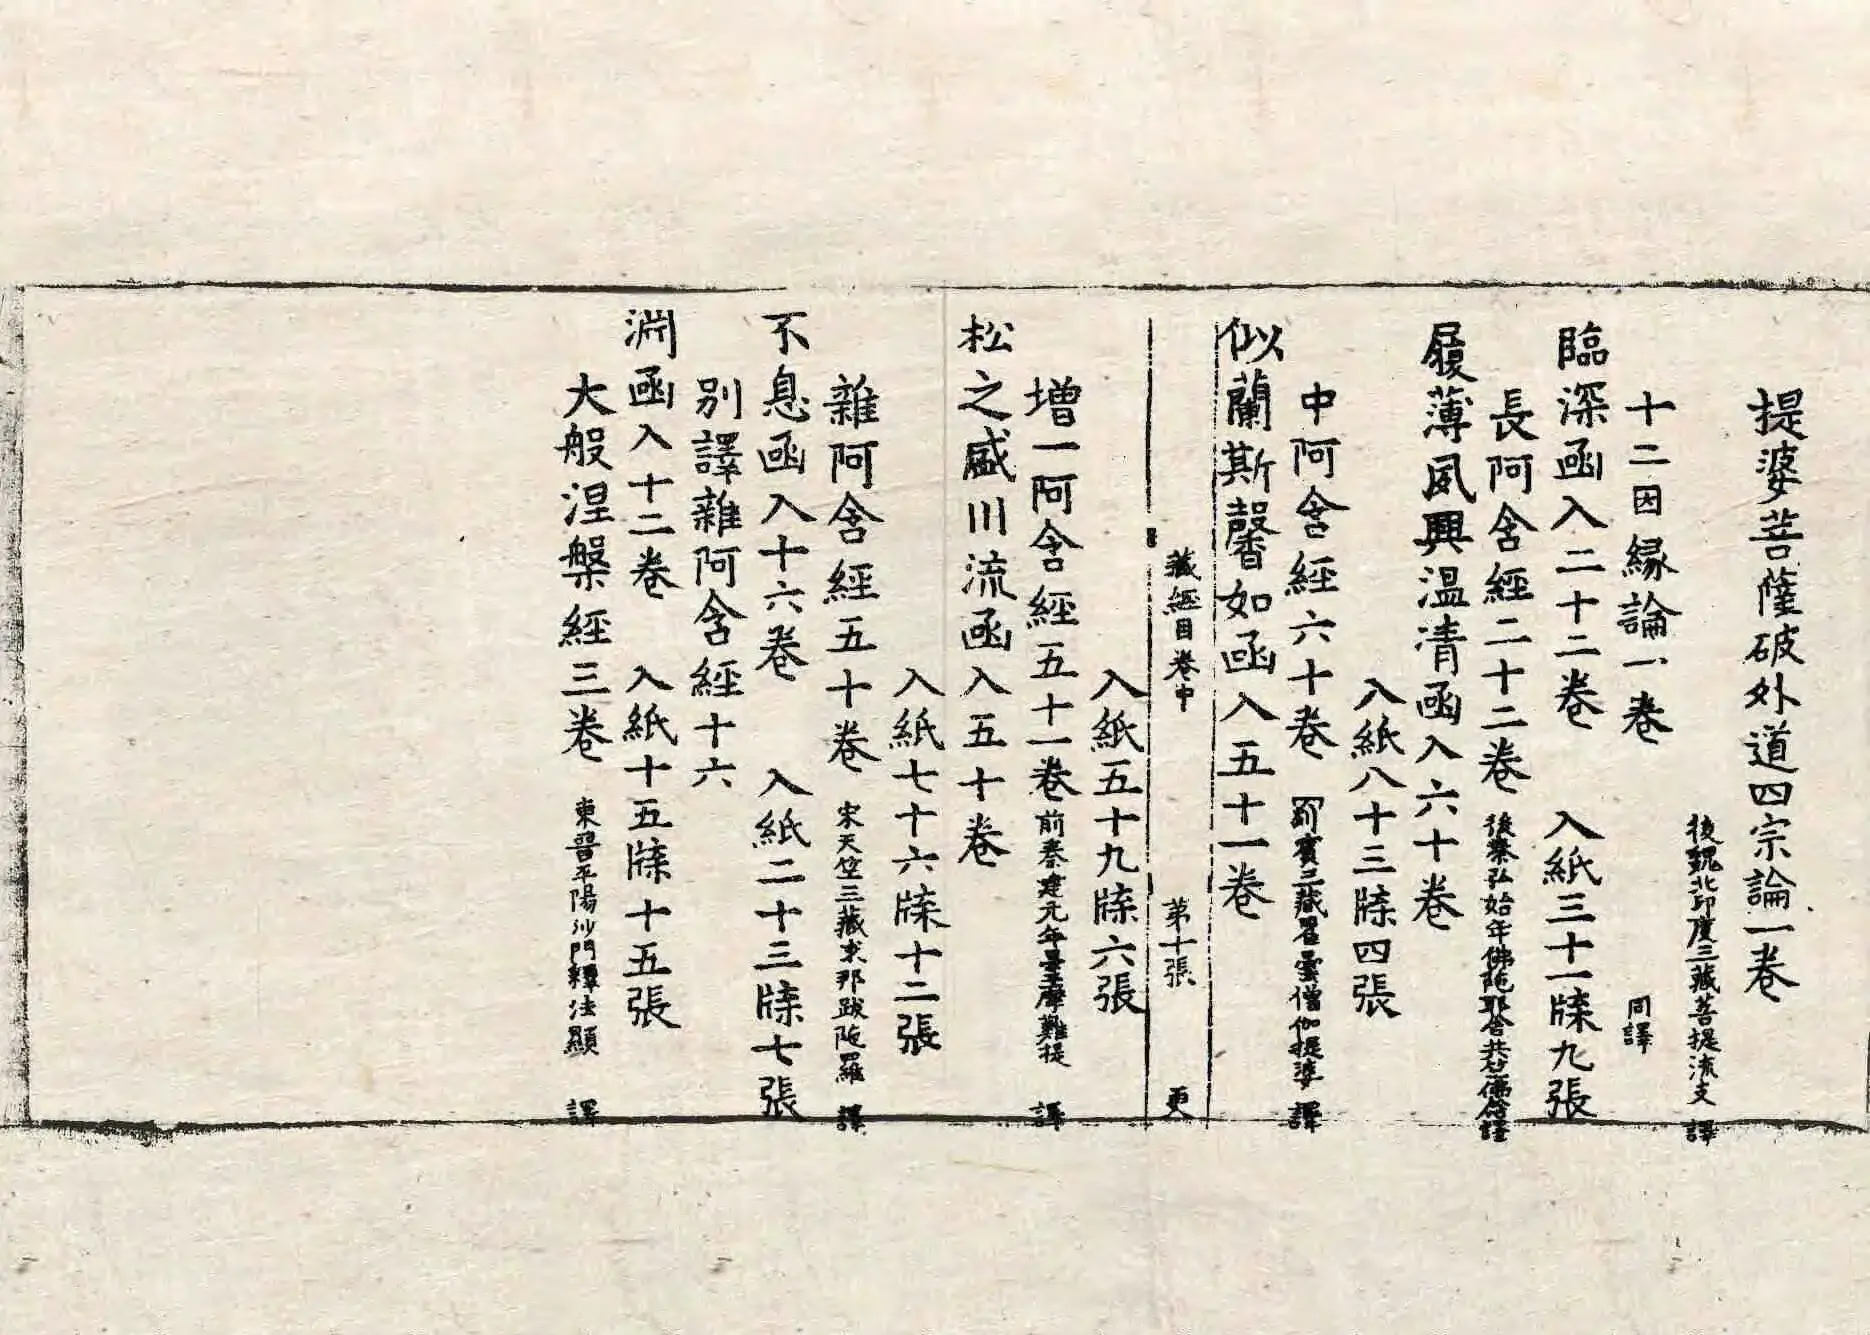 提婆菩薩破外道四宗論一卷
後魏北印度三藏菩提流支 譯
十二因縁論一卷 同譯
臨深函入二十二卷 入紙三十一牒九張
長阿含經二十二卷 後秦弘始年佛陀耶舍共竺佛念譯
履薄夙興温凊函入六十卷
入紙八十三牒四張
中阿含經六十卷 罽賓三藏瞿曇僧伽提婆 譯
似蘭斯馨如函入五十一卷
藏經目卷中 第十張 更
入紙五十九牒六張
增一阿含經五十一卷 前秦建元年曇摩難提 譯
松之盛川流函入五十卷
入紙七十六牒十二張
雜阿含經五十卷 宋天竺三藏求那跋陁羅 譯
不息函入十六卷 入紙二十三牒七張
别譯雜阿含經十六
淵函入十二卷 入紙十五牒十五張
大般涅槃經三卷 東晉平陽沙門釋法顯 譯